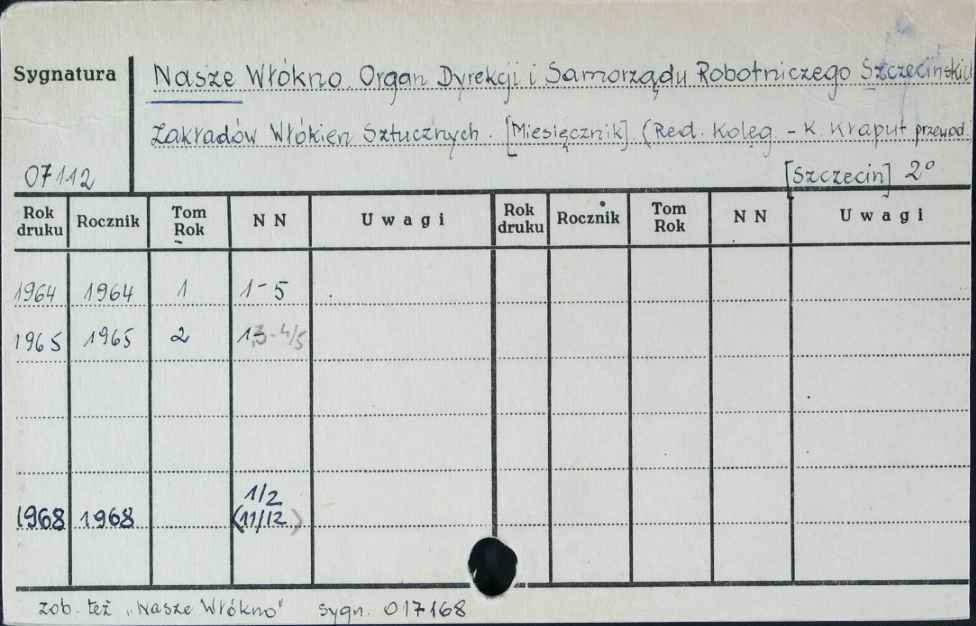 Sygnatura
Nasze Włókno. Organ Dyrekcji i Samorządu Robotniczego Szczecińskich
Zakładów Włókien Sztucznych. [Miesięcznik] (Red. Koleg. - K. Kraput przewod.
07112
[Szczecin] 2°
Rok druku Rocznik Tom Rok NN Uwagi Rok druku Rocznik Tom Rok NN Uwagi
1964 1964 1 1-5
1965 1965 2 1,3-4/5
1968 1968 1/2 (11/12)
zob. też "Nasze Włókno" sygn. 017168